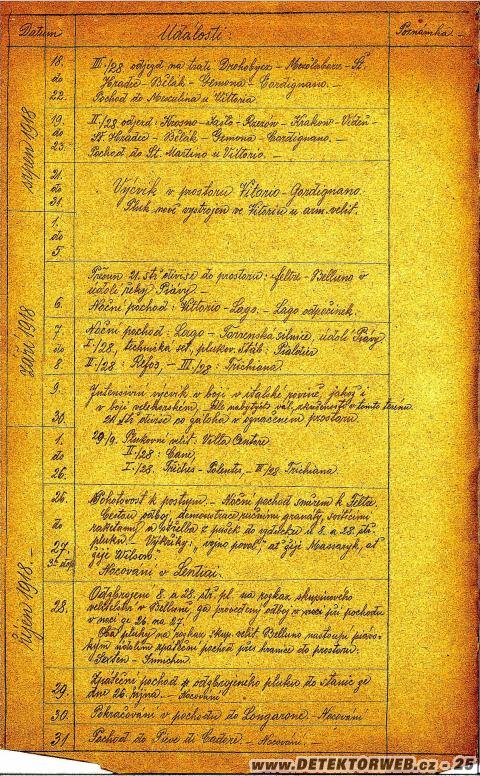 Datum Události: Poznámka.
srpen 1918
18. III./28. odjezd na trati Drohobycz - Mezölaborc - St.
do Hradec - Bělák - Gemona - Cordignano. -
22. Pochod do Mezulina u Vittoria.
19. II./28 odjezd: Krosno - Jaslo - Rzezów - Krakow - Vídeň
do St. Hradec - Bělák - Gemona - Cordignano. -
23. Pochod do St. Martino u Vittorio. -
21.
do Výcvik v prostoru Vitorio - Gordignano.
31. Pluk nově vystrojen ve Vitoriu u arm. velit.
září 1918
1.
do
5.
Přesun 21. stř. divise do prostoru: Feltre - Belluno v
údolí řeky Piávy -
6. Noční pochod: Vittorio - Lago. - Lago odpočinek.
7. Noční pochod: Lago - silnice, údolí Piávy
do I./28, technická set., plukov. štáb:
8 II./28: Refos, - III./28: Trichiana.
9. Intensivní výcvik v boji v italské rovině, jakož i
v boji velehorském.
30. 21. stř. divise co záloha v označeném prostoru.
říjen 1918. -
1. 29/9. Plukovní velit. Villa Centore
do II./28: Cani,
26. I./28. Triches - Polentes, - III./28: Trichiana.
26. Pohotovost k postupu. - Noční pochod směrem k Feltre.
Cestou odboj, demonstrace ručními granáty, svítícími
do raketami a střelba z pušek do vzduchu u 8. a 28. stř.
pluku. - Výkřiky: "vojna povol", "ať žije Massaryk, ať
27. žije Wilson".
Nocování v Lentiai.
28. Odzbrojení 8. a 28. stř. pl. na rozkaz skupinového
velitelství v Belluno, za provedený odboj v noci při pochodu
v noci ze 26. na 27.
Oba pluky na rozkaz skup. velit. Belluno nastoupí
údolím zpáteční pochod přes hranice do prostoru:
Sexten - Innichen.
Zpáteční pochod odzbrojeného pluku do stanic ze
29. dne 26. října. - Nocování
30. Pokračování v pochodu do Longarone. - Nocování
31. Pochod do Pieve di Cadore. - Nocování. -
www.DETEKTORWEB.cz - 25